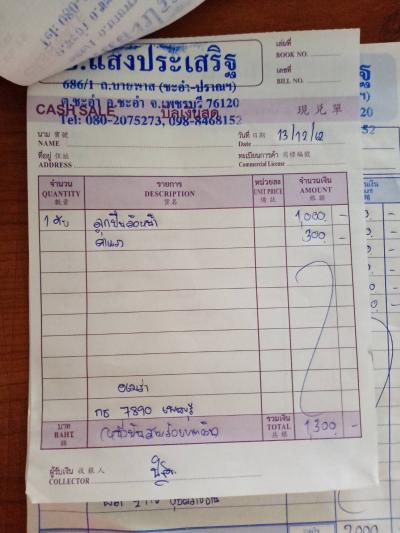 แสงประเสริฐ
686/1 ถ.บายพาส (ชะอำ-ปราณฯ)
ต.ชะอำ อ.ชะอำ จ.เพชรบุรี 76120
Tel: 080-2075273, 098-8468152
เล่มที่
BOOK NO.
เลขที่
BILL NO.
CASH SALE บิลเงินสด 現兌單
นาม 寶號
NAME
วันที่ 日期 13/12/62
DATE
ที่อยู่ 住址
ADDRESS
ทะเบียนการค้า 商標編號
Commercial License
จำนวน รายการ หน่วยละ จำนวนเงิน
QUANTITY DESCRIPTION UNIT PRICE AMOUNT
數量 貨名 備註 銀額
ลูกปืนล้อหน้า 1000 -
ค่าแรง 300 -
กธ 7890 เพชรบุรี
บาท รวมเงิน
BAHT (หนึ่งพันสามร้อยบาทถ้วน) TOTAL 1300 -
銖 共銀
ผู้รับเงิน 收銀人
COLLECTOR